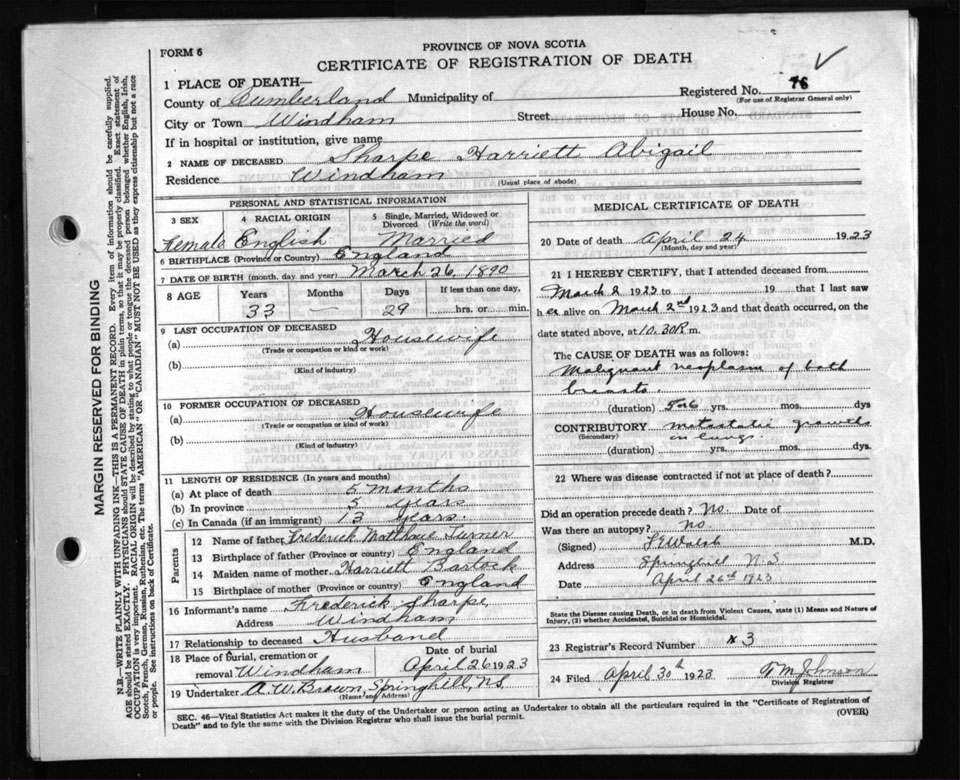 FORM 6
PROVINCE OF NOVA SCOTIA
CERTIFICATE OF REGISTRATION OF DEATH
1 PLACE OF DEATH—
Registered No. 76
(For use of Registrar General only)
County of Cumberland Municipality of
City or Town Windham Street House No.
If in hospital or institution, give name
2 NAME OF DECEASED Sharpe Harriett Abigail
Residence Windham
(Usual place of abode)
PERSONAL AND STATISTICAL INFORMATION
3 SEX 4 RACIAL ORIGIN 5 Single, Married, Widowed or Divorced (Write the word)
Female English Married
6 BIRTHPLACE (Province or Country) England
7 DATE OF BIRTH (month, day and year) March 26, 1890
8 AGE Years Months Days If less than one day,
33 — 29 hrs. or min.
9 LAST OCCUPATION OF DECEASED
(a) Housewife
(Trade or occupation or kind of work)
(b)
(Kind of industry)
10 FORMER OCCUPATION OF DECEASED
(a) Housewife
(Trade or occupation or kind of work)
(b)
(Kind of industry)
11 LENGTH OF RESIDENCE (In years and months)
(a) At place of death 5 months
(b) In province 5 years
(c) In Canada (if an immigrant) 13 years.
Parents
12 Name of father Frederick Matthew Turner
13 Birthplace of father (Province or country) England
14 Maiden name of mother. Harriett Barlock
15 Birthplace of mother (Province or country) England
16 Informant's name Frederick Sharpe
Address Windham
17 Relationship to deceased Husband
18 Place of burial, cremation or removal Windham Date of burial April 26 1923
19 Undertaker A. W. Brown, Springhill, N.S.
(Name and Address)
MEDICAL CERTIFICATE OF DEATH
20 Date of death April 24 1923
(Month, day and year)
21 I HEREBY CERTIFY, that I attended deceased from
March 2 1923 to 19 that I last saw
her alive on March 2nd 1923 and that death occurred, on
date stated above, at 10.30 P. m.
The CAUSE OF DEATH was as follows:
Malignant neoplasm of both
breasts
(duration) 5 or 6 yrs. mos. dys
CONTRIBUTORY metastatic growths
(Secondary) in lungs.
(duration) yrs. mos. dys.
22 Where was disease contracted if not at place of death?
Did an operation precede death? No. Date of
Was there an autopsy? no
(Signed) M.D.
Address Springhill N.S.
Date April 26th 1923
State the Disease causing Death, or in death from Violent Causes, state (1) Means and Nature of
Injury, (2) whether Accidental, Suicidal or Homicidal.
23 Registrar's Record Number x 3
24 Filed April 30th 1923 Johnson
Division Registrar
SEC. 46—Vital Statistics Act makes it the duty of the Undertaker or person acting as Undertaker to obtain all the particulars required in the "Certificate of Registration of
Death" and to fyle the same with the Division Registrar who shall issue the burial permit. (OVER)
MARGIN RESERVED FOR BINDING
N.B.—WRITE PLAINLY WITH UNFADING INK—THIS IS A PERMANENT RECORD. Every item of information should be carefully supplied.
AGE should be stated EXACTLY. PHYSICIANS should STATE CAUSE OF DEATH in plain terms, so that it may be properly classified. Exact statement of
OCCUPATION is very important. RACIAL ORIGIN will be described by stating to what people or tongue the deceased person belonged whether English, Irish,
Scotch, French, German, Russian, Ruthenian, etc. The terms "AMERICAN" OR "CANADIAN" MUST NOT BE USED as they express citizenship but not a race
or people. See instructions on back of Certificate.